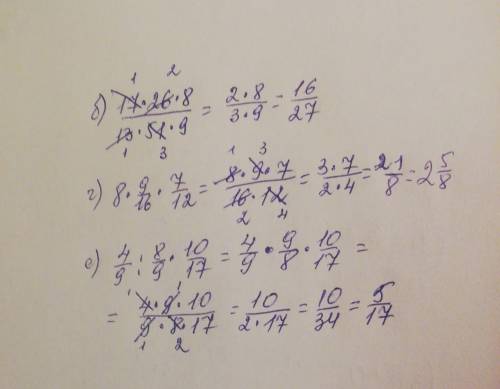 б) 17·26·8/13·51·9 = 2·8/3·9 = 16/27
г) 8·9/16·7/12 = 8·9·7/16·12 = 3·7/2·4 = 21/8 = 2 5/8
е) 4/9 : 8/9 · 10/17 = 4/9 · 9/8 · 10/17 =
= 4·9·10/9·8·17 = 10/2·17 = 10/34 = 5/17